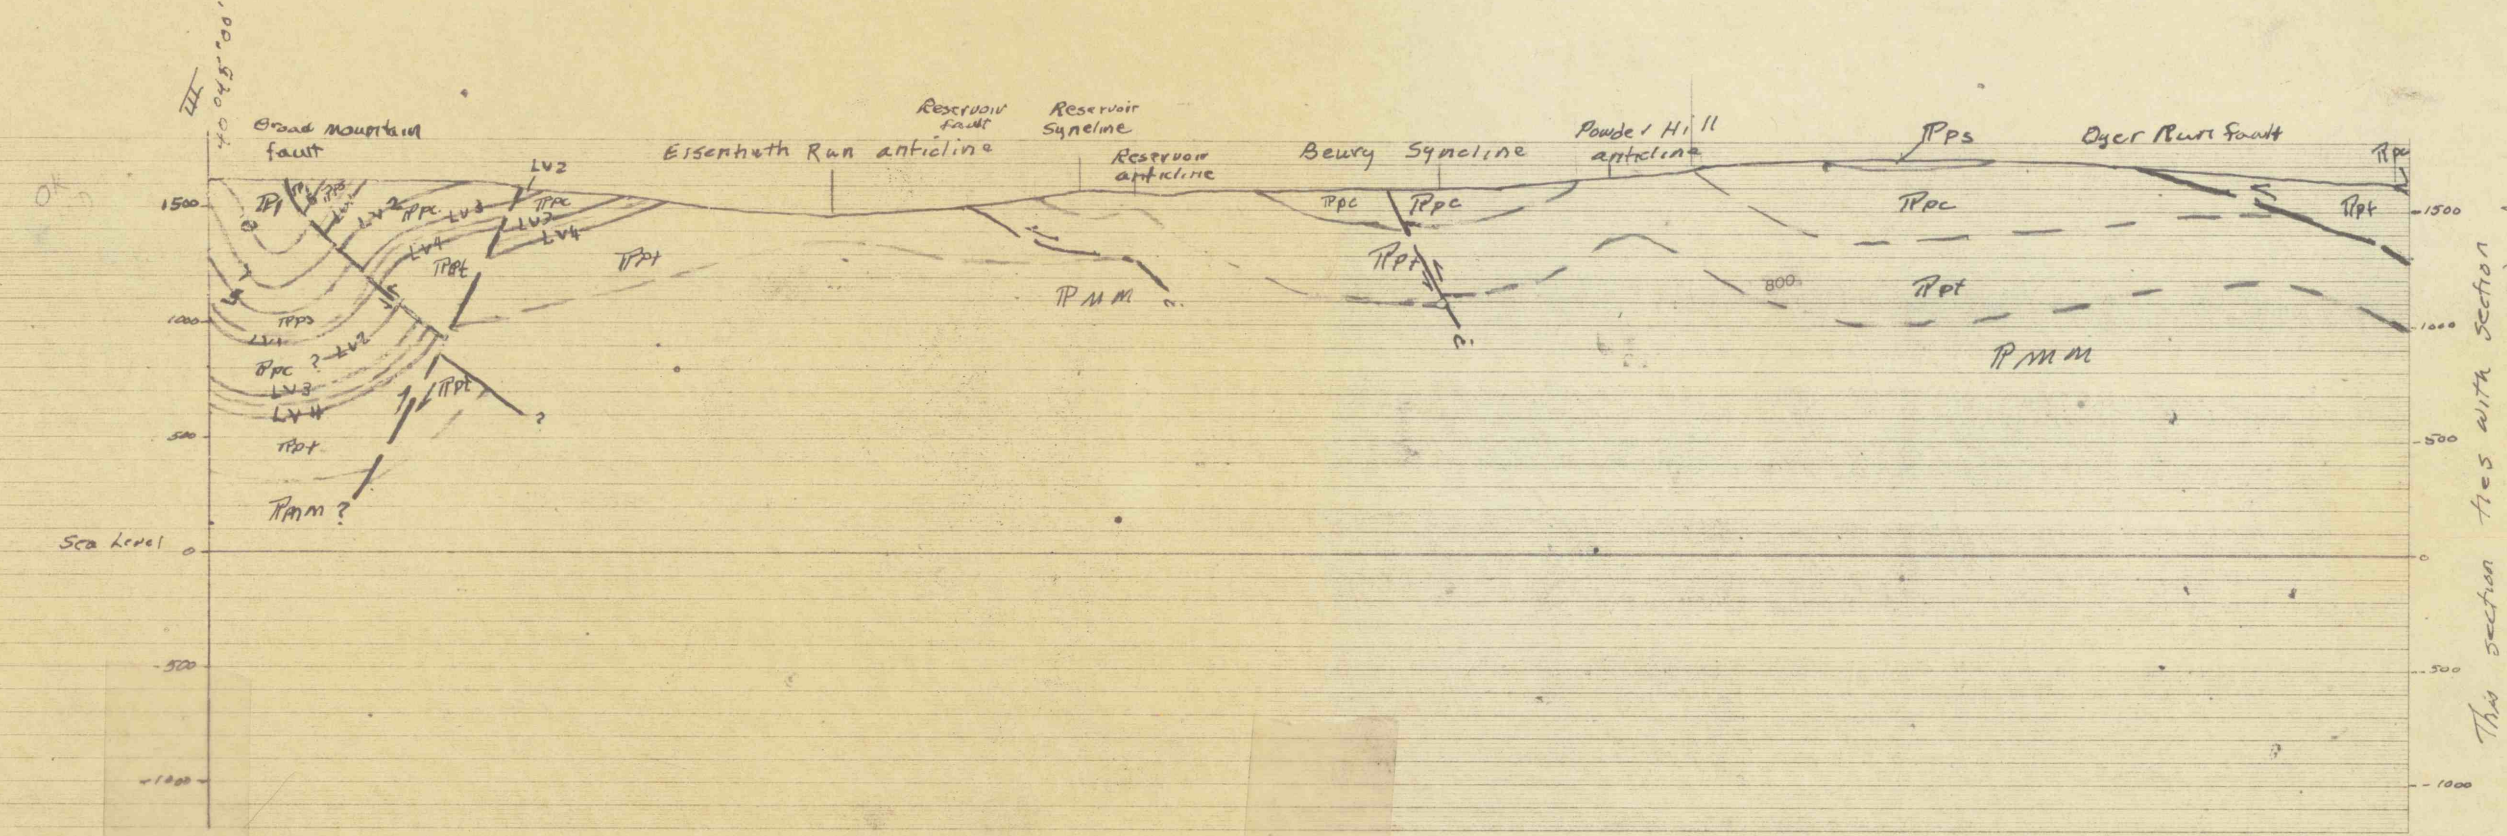 III
40°045'00"
OK
Broad Mountain
fault
LV2
Eisenhuth Run anticline
Reservoir
fault
Reservoir
Syncline
Reservoir
anticline
Beury Syncline
Powder Hill
anticline
ℙps
Dyer Run fault
ℙpc
1500
ℙl
LV2
ℙpc
LV3
ℙpc
LV3
LV4
LV4
ℙpt
ℙpt
ℙpc
ℙpc
ℙpc
ℙpt
1500
ℙpt
800
ℙpt
ℙMM
?
1000
ℙps
LV1
? LV2
ℙpc
LV3
LV4
ℙpt
?
?
1000
ℙMM
500
ℙpt
500
ℙMM ?
Sea Level 0
0
-500
-500
-1000
-1000
This section ties with section